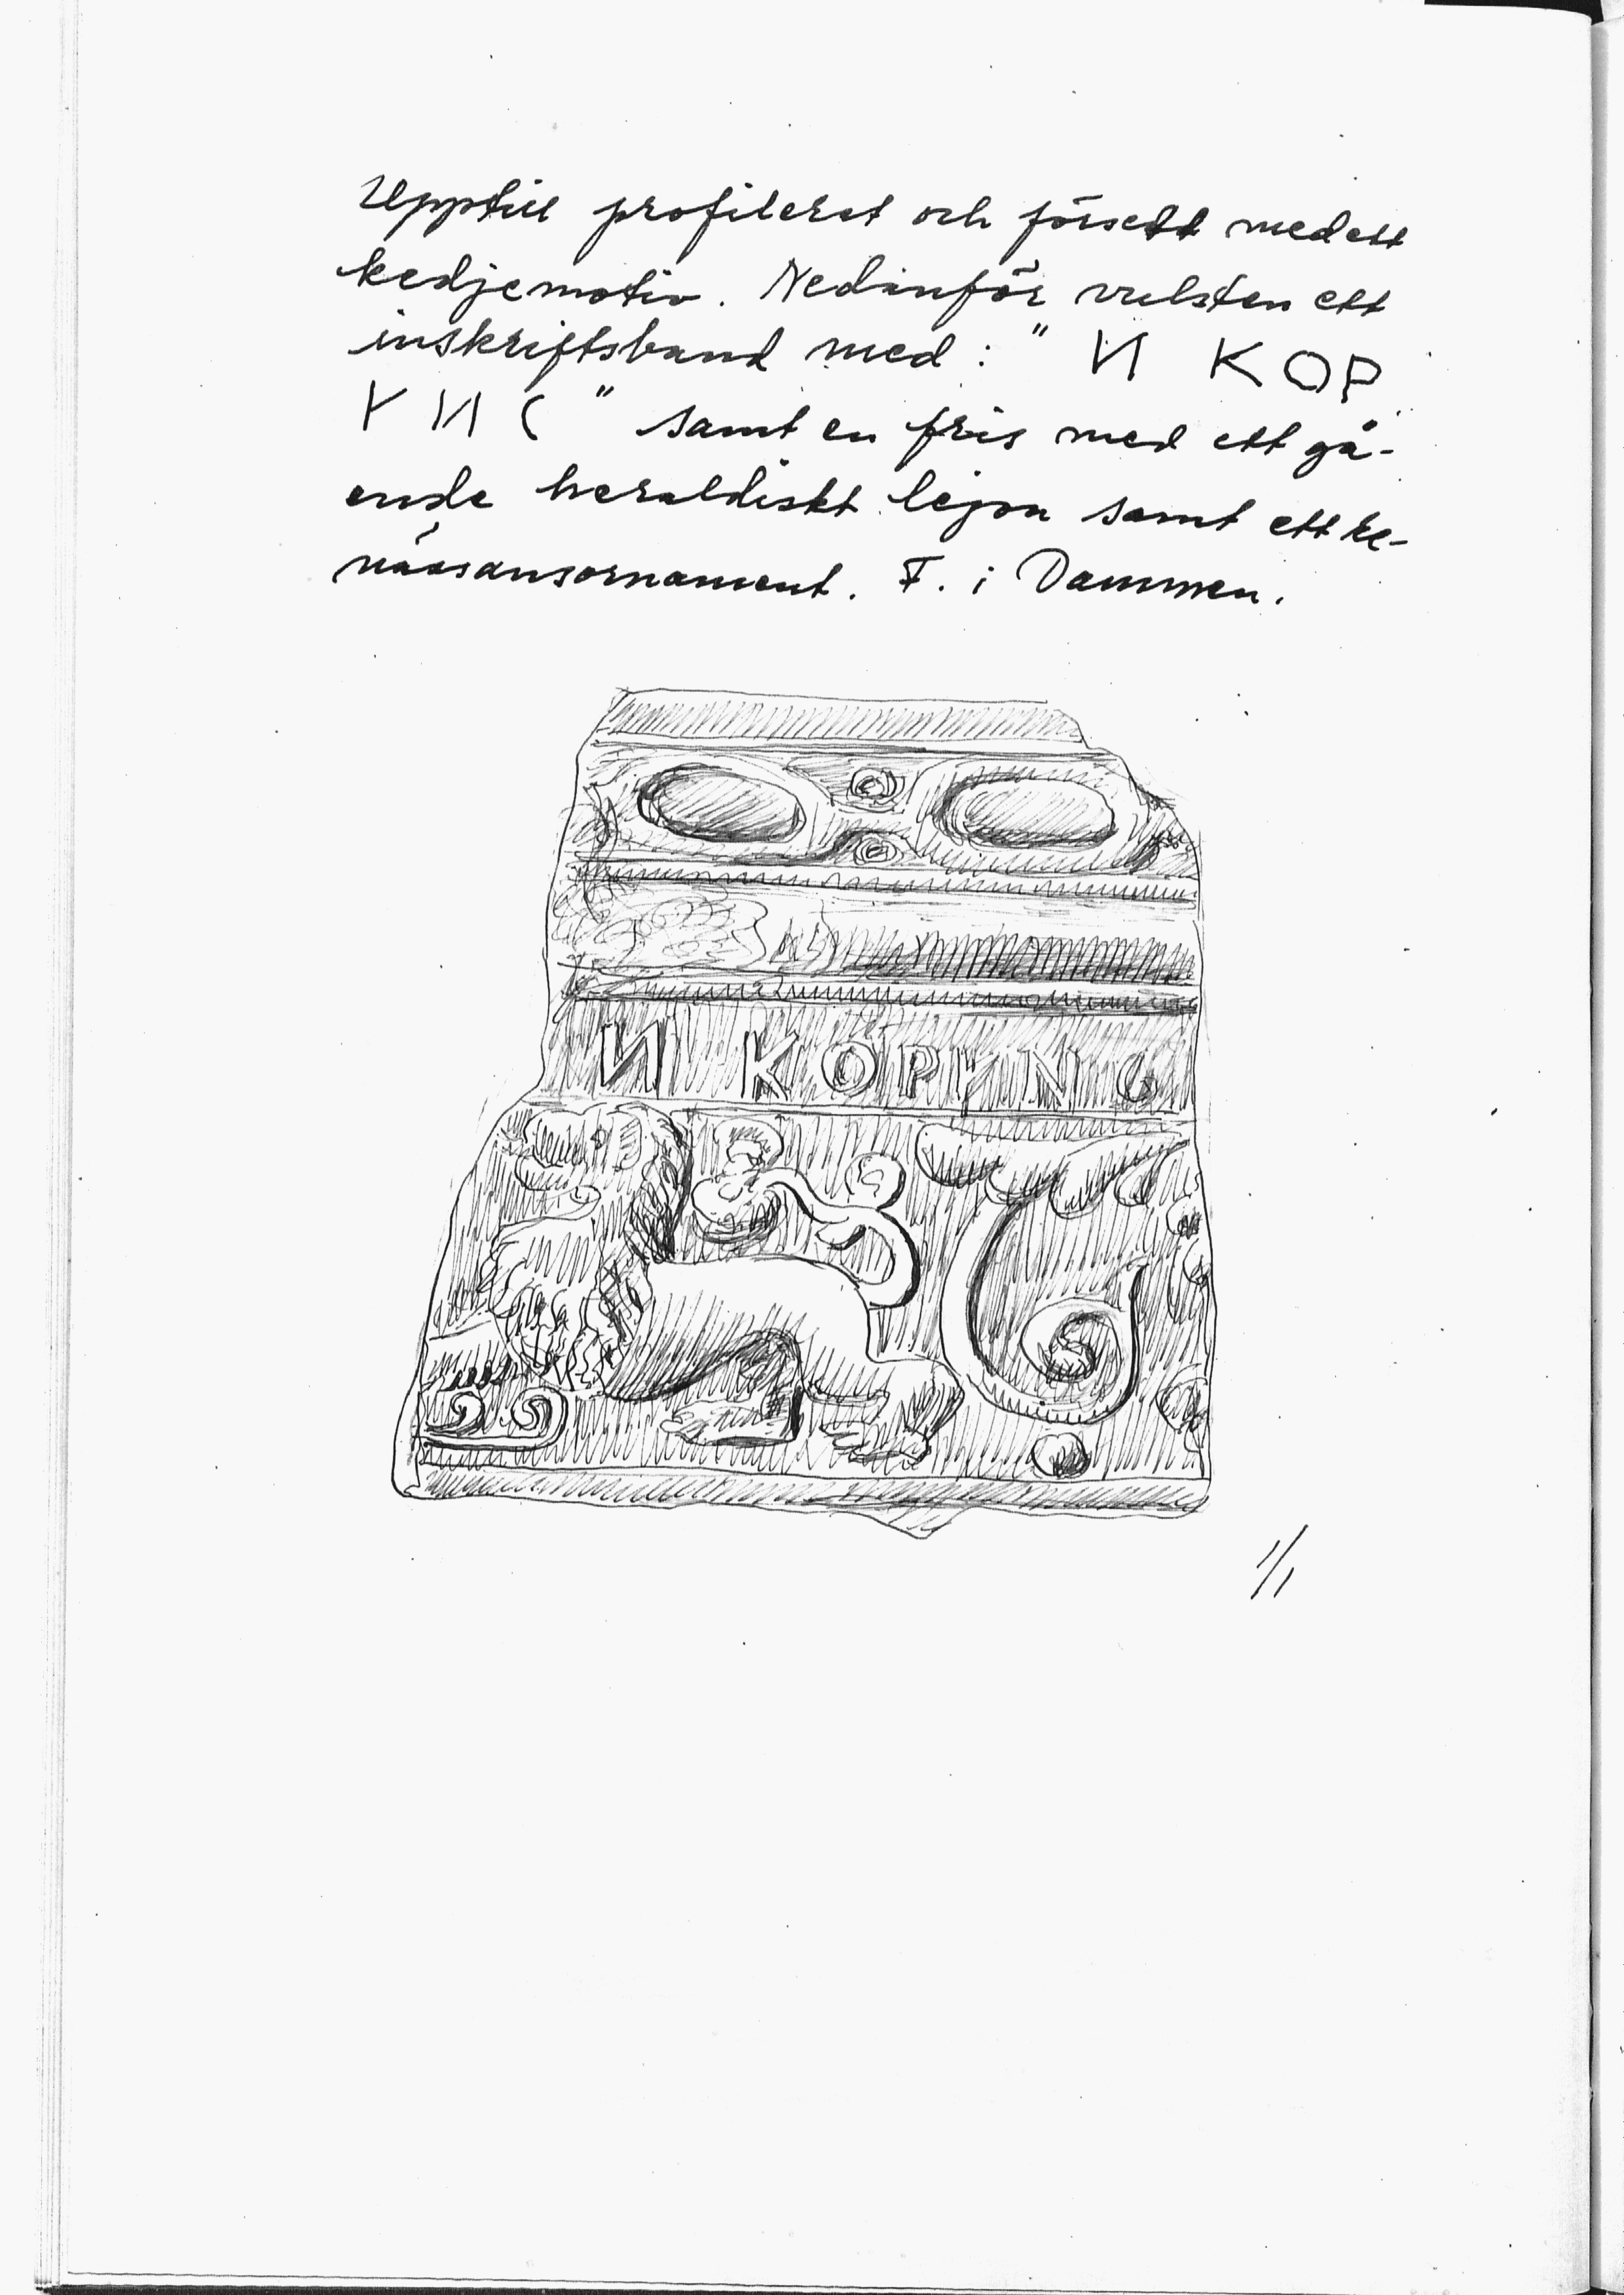 Upptill profilerat och försett med ett
kedjemotiv. Nedanför vulsten ett
inskriftsband med: " И KOP
Y И C " samt en fris med ett gå-
ende heraldiskt lejon samt ett re-
nässansornament. F. i Dammen.
И KOPYN C
1/1